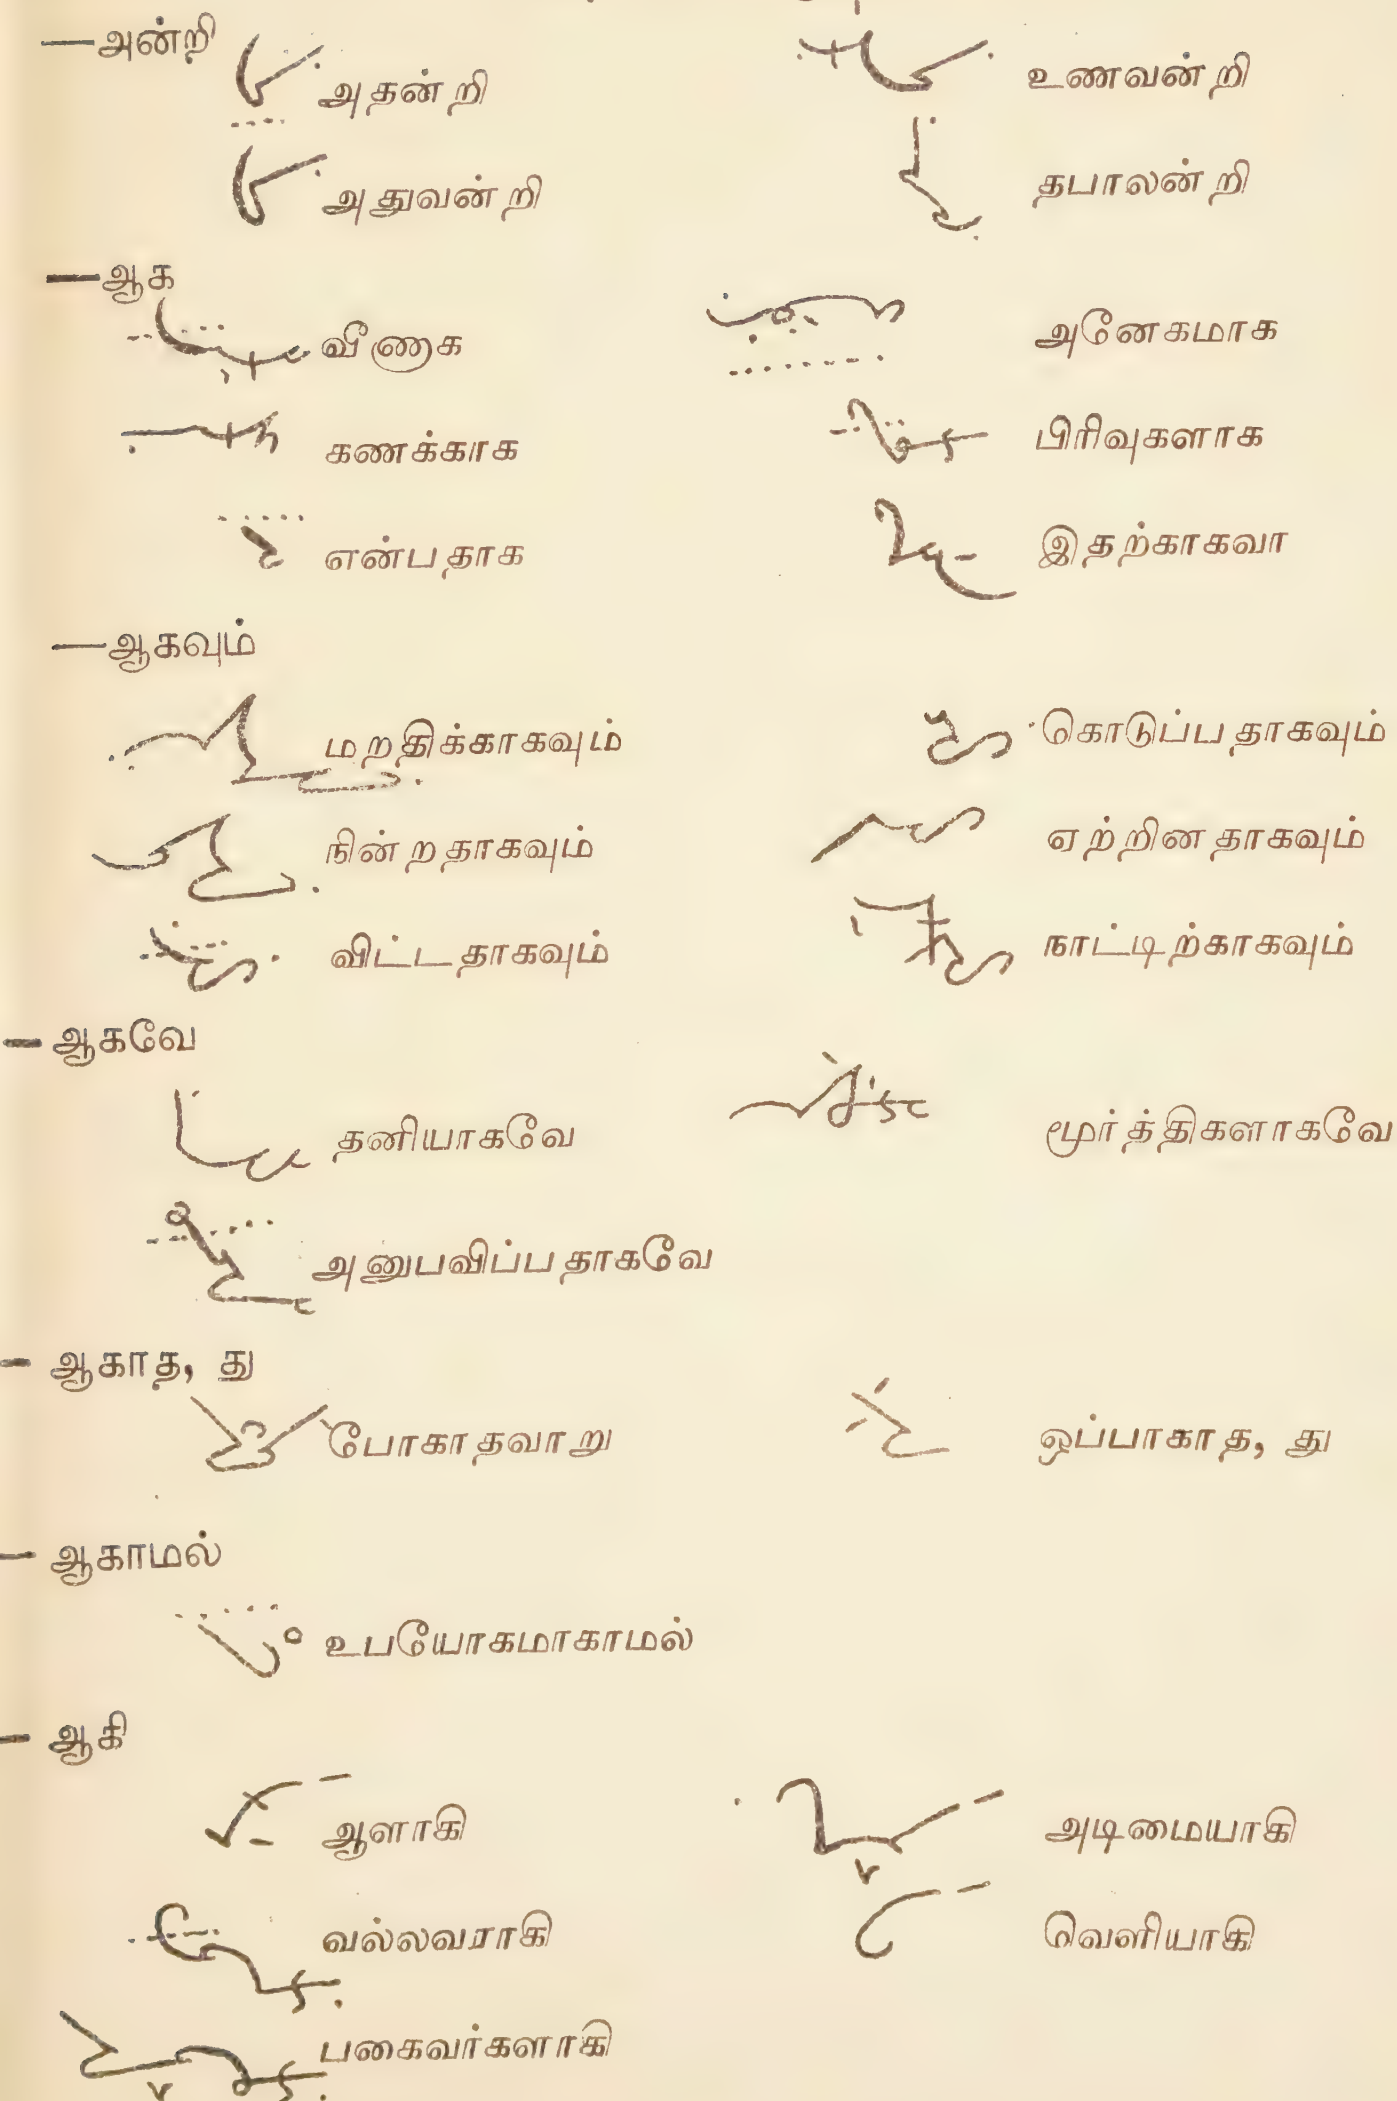 —அன்றி
அதன்றி உணவன்றி
அதுவன்றி தபாலன்றி
—ஆக
வீணாக அனேகமாக
கணக்காக பிரிவுகளாக
என்பதாக இதற்காகவா
—ஆகவும்
மறதிக்காகவும் கொடுப்பதாகவும்
நின்றதாகவும் ஏற்றினதாகவும்
விட்டதாகவும் நாட்டிற்காகவும்
—ஆகவே
தனியாகவே மூர்த்திகளாகவே
அனுபவிப்பதாகவே
—ஆகாத, து
போகாதவாறு ஒப்பாகாத, து
—ஆகாமல்
உபயோகமாகாமல்
—ஆகி
ஆளாகி அடிமையாகி
வல்லவராகி வெளியாகி
பகைவர்களாகி